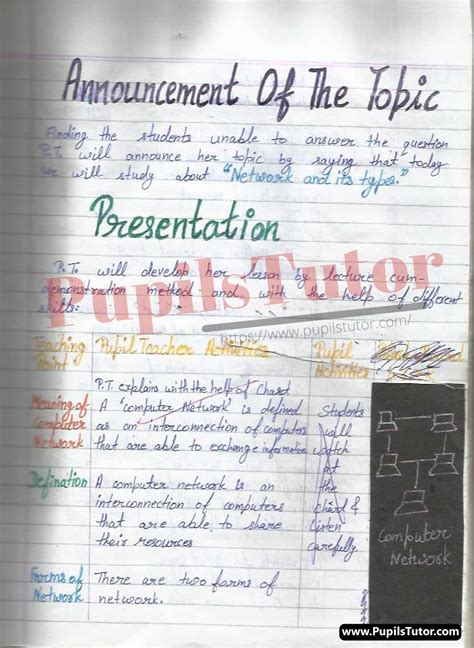 Announcement Of The Topic
Finding the students unable to answer the question
P.T. will announce her topic by saying that "today
we will study about "Network and its types."
Presentation
P.T. will develop her lesson by lecture cum-
demonstration method and with the help of different
skills:
PupilsTutor
https://www.pupilstutor.com/
Teaching Point
Pupil Teacher Activities
Pupil Activities
P.T. explains with the help of Chart
Meaning of
Computer
Network
A 'computer Network' is defined
as an interconnection of computers
that are able to exchange information
Students
will
watch
at
the
chard &
listen
carefully
Computer
Network
Defination
A computer network is an
interconnection of computers
that are able to share
their resources
Forms of
Network
There are two forms of
network.
www.PupilsTutor.com